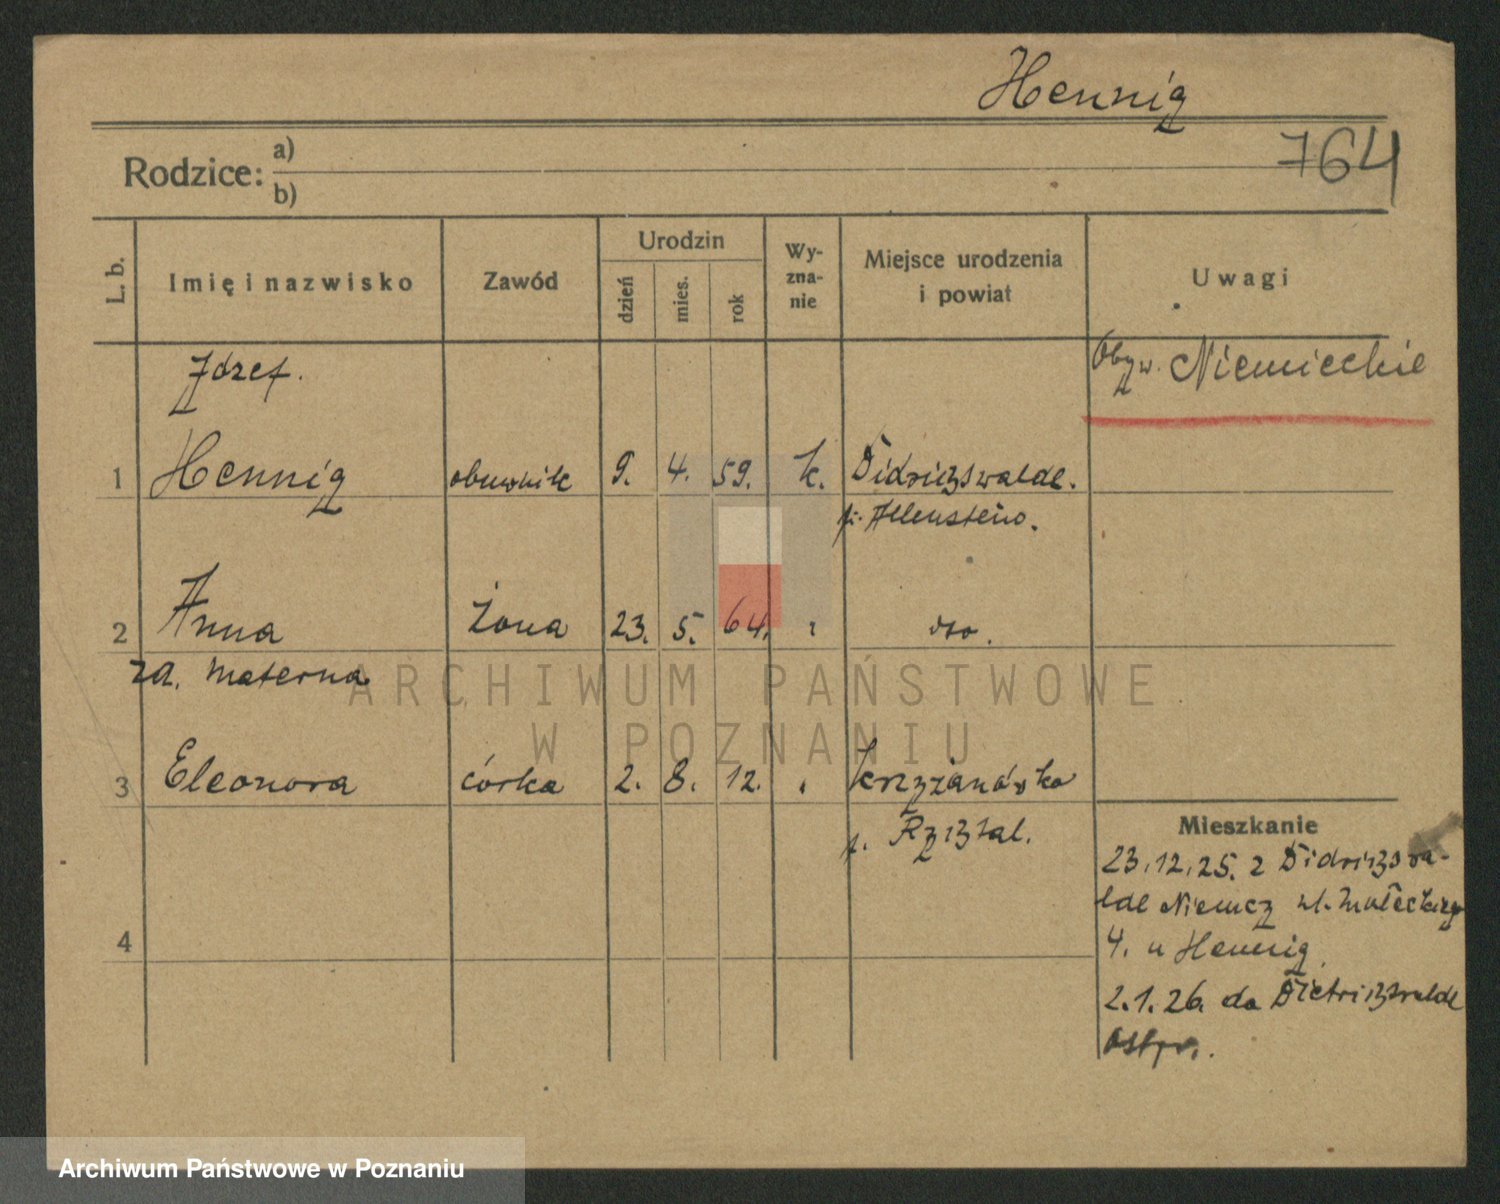 Hennig
764
Rodzice: a)
b)
L. b. Imię i nazwisko Zawód Urodzin dzień mies. rok Wy-zna-nie Miejsce urodzenia i powiat Uwagi
Józef. Obyw. Niemieckie
1 Hennig obuwnik 9. 4. 59. k. Didrigswalde.
p. Allenstein.
2 Anna żona 23. 5. 64. dso.
za. Materna
ARCHIWUM PAŃSTWOWE
W POZNANIU
3 Eleonora córka 2. 8. 12. Krzyżanówko
Mieszkanie
23.12.25. z Didrigswa-
lde Niemcy ul. Małeckiego
4
4. u Hennig
2.1.26. do Dietrigswalde
Ostpr.
Archiwum Państwowe w Poznaniu